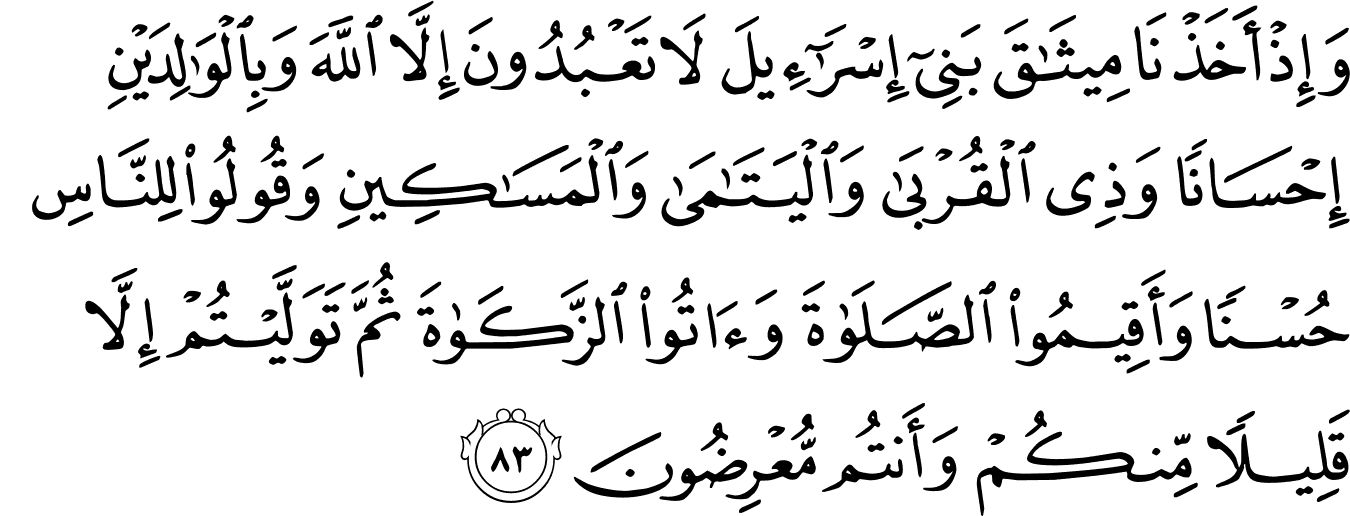 وَإِذْ أَخَذْنَا مِيثَٰقَ بَنِىٓ إِسْرَٰٓءِيلَ لَا تَعْبُدُونَ إِلَّا ٱللَّهَ وَبِٱلْوَٰلِدَيْنِ
إِحْسَانًا وَذِى ٱلْقُرْبَىٰ وَٱلْيَتَٰمَىٰ وَٱلْمَسَٰكِينِ وَقُولُوا۟ لِلنَّاسِ
حُسْنًا وَأَقِيمُوا۟ ٱلصَّلَوٰةَ وَءَاتُوا۟ ٱلزَّكَوٰةَ ثُمَّ تَوَلَّيْتُمْ إِلَّا
قَلِيلًا مِّنكُمْ وَأَنتُم مُّعْرِضُونَ ٨٣